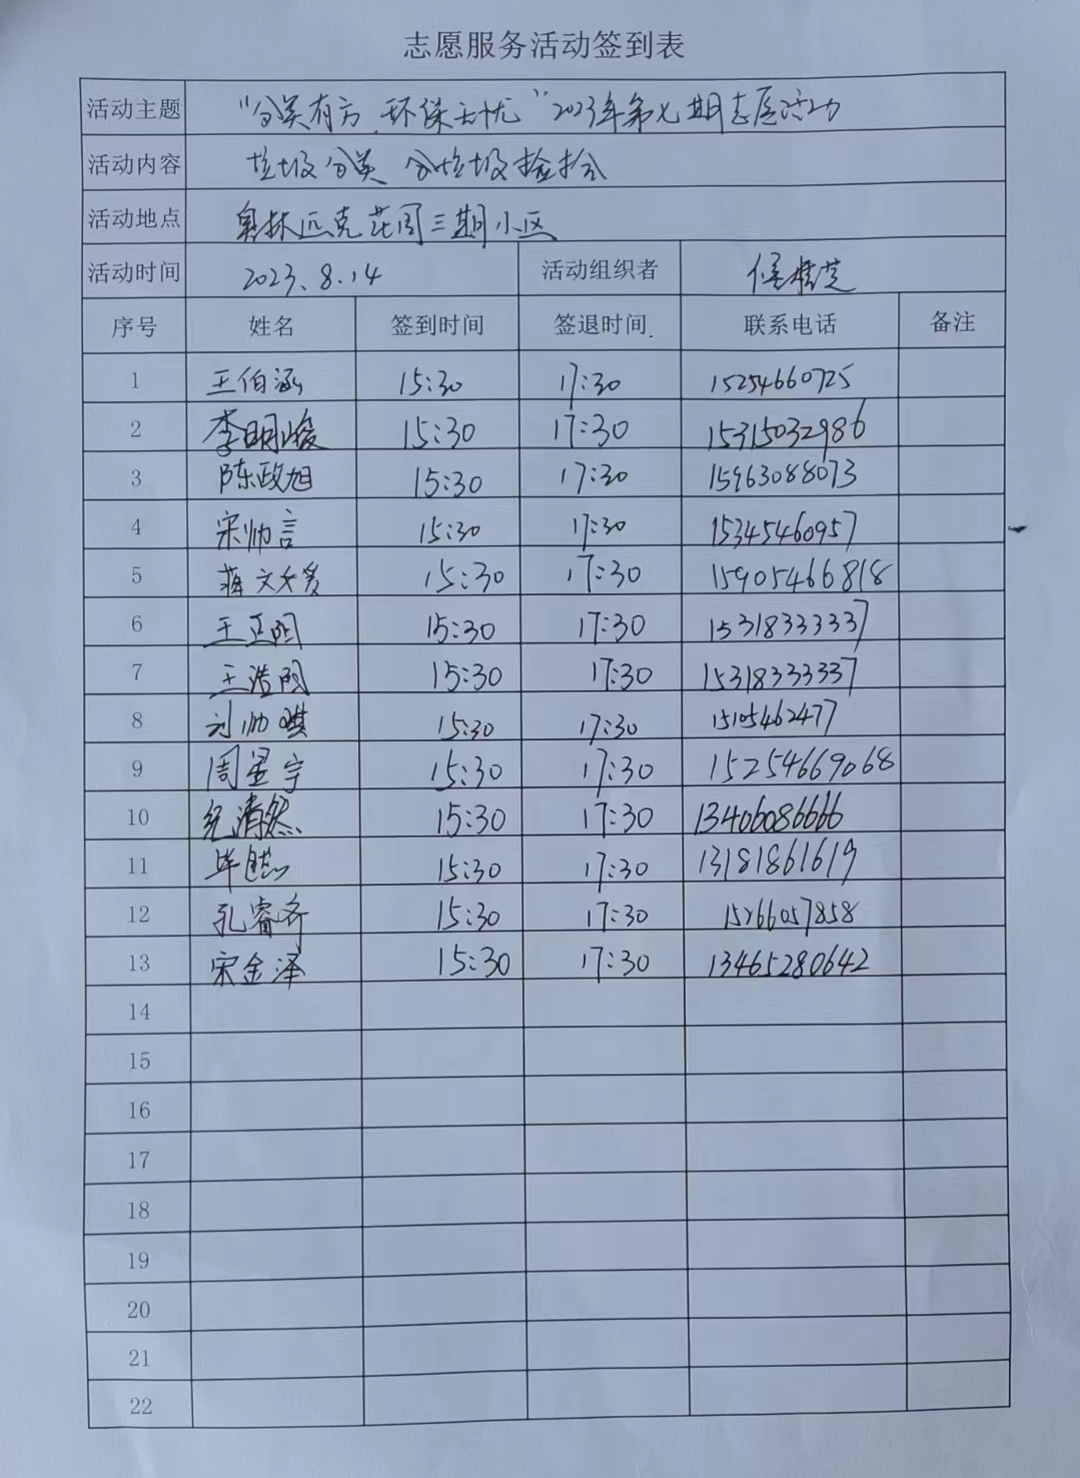 志愿服务活动签到表
活动主题 “分类有方,环保无忧”2023年第七期志愿活动
活动内容 垃圾分类 分垃圾捡拾
活动地点 奥林匹克花园三期小区
活动时间 2023.8.14 活动组织者
序号 姓名 签到时间 签退时间 联系电话 备注
1 王伯涵 15:30 17:30 15254660725
2 李明峻 15:30 17:30 15315032986
3 陈政旭 15:30 17:30 15963088073
4 宋帅言 15:30 17:30 15345460957
5 蒋文 15:30 17:30 15905466818
6 王 15:30 17:30 15318333337
7 王浩 15:30 17:30 15318333337
8 刘帅琪 15:30 17:30 15105462477
9 周星宇 15:30 17:30 15254669068
10 纪清然 15:30 17:30 13406086666
11 毕 15:30 17:30 13181861619
12 孔睿齐 15:30 17:30 15266057858
13 宋金泽 15:30 17:30 13465280642
14
15
16
17
18
19
20
21
22